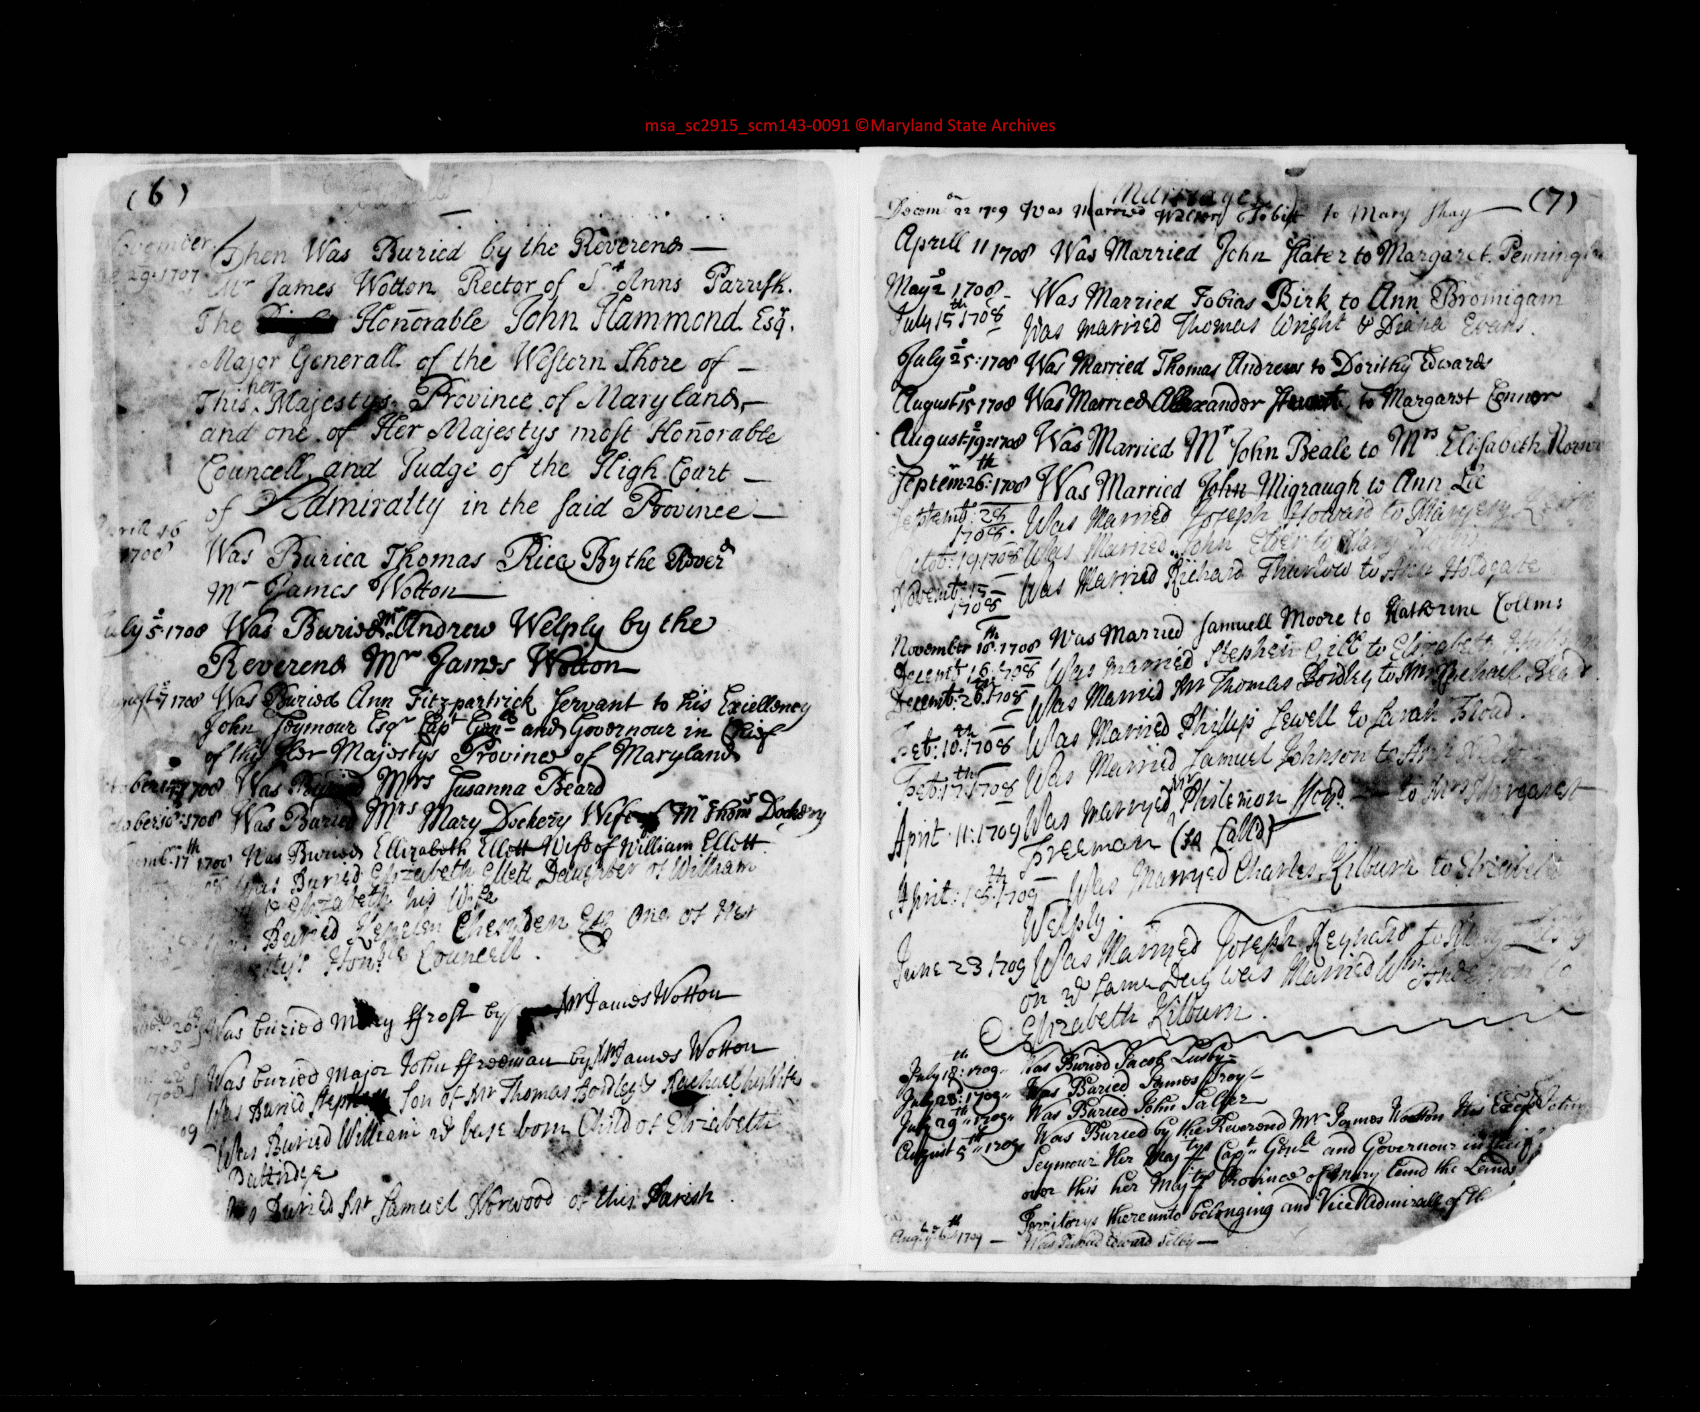 msa_sc2915_scm143-0091 ©Maryland State Archives
(6)
Then Was Buried by the Reverend
29: 1707 Mr James Wotton Rector of St Anns Parrish.
The Honorable John Hammond Esqr.
Major Generall of the Western Shore of
This her Majestys Province of Maryland,
and one of Her Majestys most Honorable
Councell, and Judge of the High Court
of Admiralty in the said Province
16
1708 Was Buried Thomas Rice By the Reverd
Mr James Wotton
July 5: 1708 Was Buried Mr Andrew Welply by the
Reverend Mr James Wotton
1708 Was Buried Ann Fitzpartrick Servant to his Exiellency
John Seymour Esqr Capt Genll and Governour in Chief
of this Her Majestys Province of Maryland
1708 Was Buried Mrs Susanna Beard
1708 Was Buried Mrs Mary Dockery Wife of Mr Thoms Dockery
17th 1708 Was Buried Ellizabeth Ellett Wife of William Ellett
Was Buried Elizabeth Ellett Daughter of William
& Elizabeth his Wife
Buried Cheselden Esqr one of Her
Honble Councell.
Was buried Mary ffrost by Mr James Wotton
Was buried Major John ffreeman by Mr James Wotton
Was Buried Stephen Son of Mr Thomas Bordley & Rachael his Wife
Was Buried William a base born Child of Elizabeth
Was Buried Mr Samuel Norwood of this Parish.
(Marriages) (7)
Decem 22 1709 Was Married to Mary Shay
Aprill 11 1708 Was Married John Slater to Margaret
May 2 1708 Was Married Tobias Birk to Ann Bromigam
July 15th 1708 Was married Thomas Wright & Diana Evans.
July 25: 1708 Was Married Thomas Andrews to Dorithy Edwards
August 15 1708 Was Married Alexander to Margaret Connor
August 19: 1708 Was Married Mr John Beale to Mrs Elisabeth
Septem 26th: 1708 Was Married John Migraugh to Ann Lee
Septemb: 28 Was Married Joseph Howard to Margery
1708.
Octob: 19 1708 Was Married John to Mary
Novemb: 15 Was Married Richard Thurlow to Ann Holdgate
1708
November 18th 1708 Was Married Samuell Moore to Katherine Collins
Decemb 16 1708 Was Married Stephen Gill to Elizabeth
Decemb: 26 1708 Was Married Mr Thomas Bordley to Mrs Rachael Beard.
Feb: 10th 1708 Was Married Phillip Jewell to Sarah
Feb: 17th: 1708 Was Married Samuel Johnson to Ann
April: 11: 1709 Was Marryed Mr Philemon to Mrs Margaret
Freeman (so Calld)
April: 18th: 1709 Was Marryed Charles Kilburn to Elizabeth
Welply.
June 23 1709 Was Married Joseph Reynard to Mary
on ye same Day was Married Wm Anderson to
Elizabeth Kilburn.
July 18th: 1709 Was Buried Jacob Lusby
July 28: 1709 Was Buried James
July 29th: 1709 Was Buried John
August 5th: 1709 Was Buried by the Reverend Mr James Wootton His John
Seymour Her Majtys Capt Genll and Governour in Chief
over this her Majtys Province of Mary land the Lands
Territorys thereunto belonging and Vice Admirall of the
Augst 6th 1709 Was Buried Edward Selby